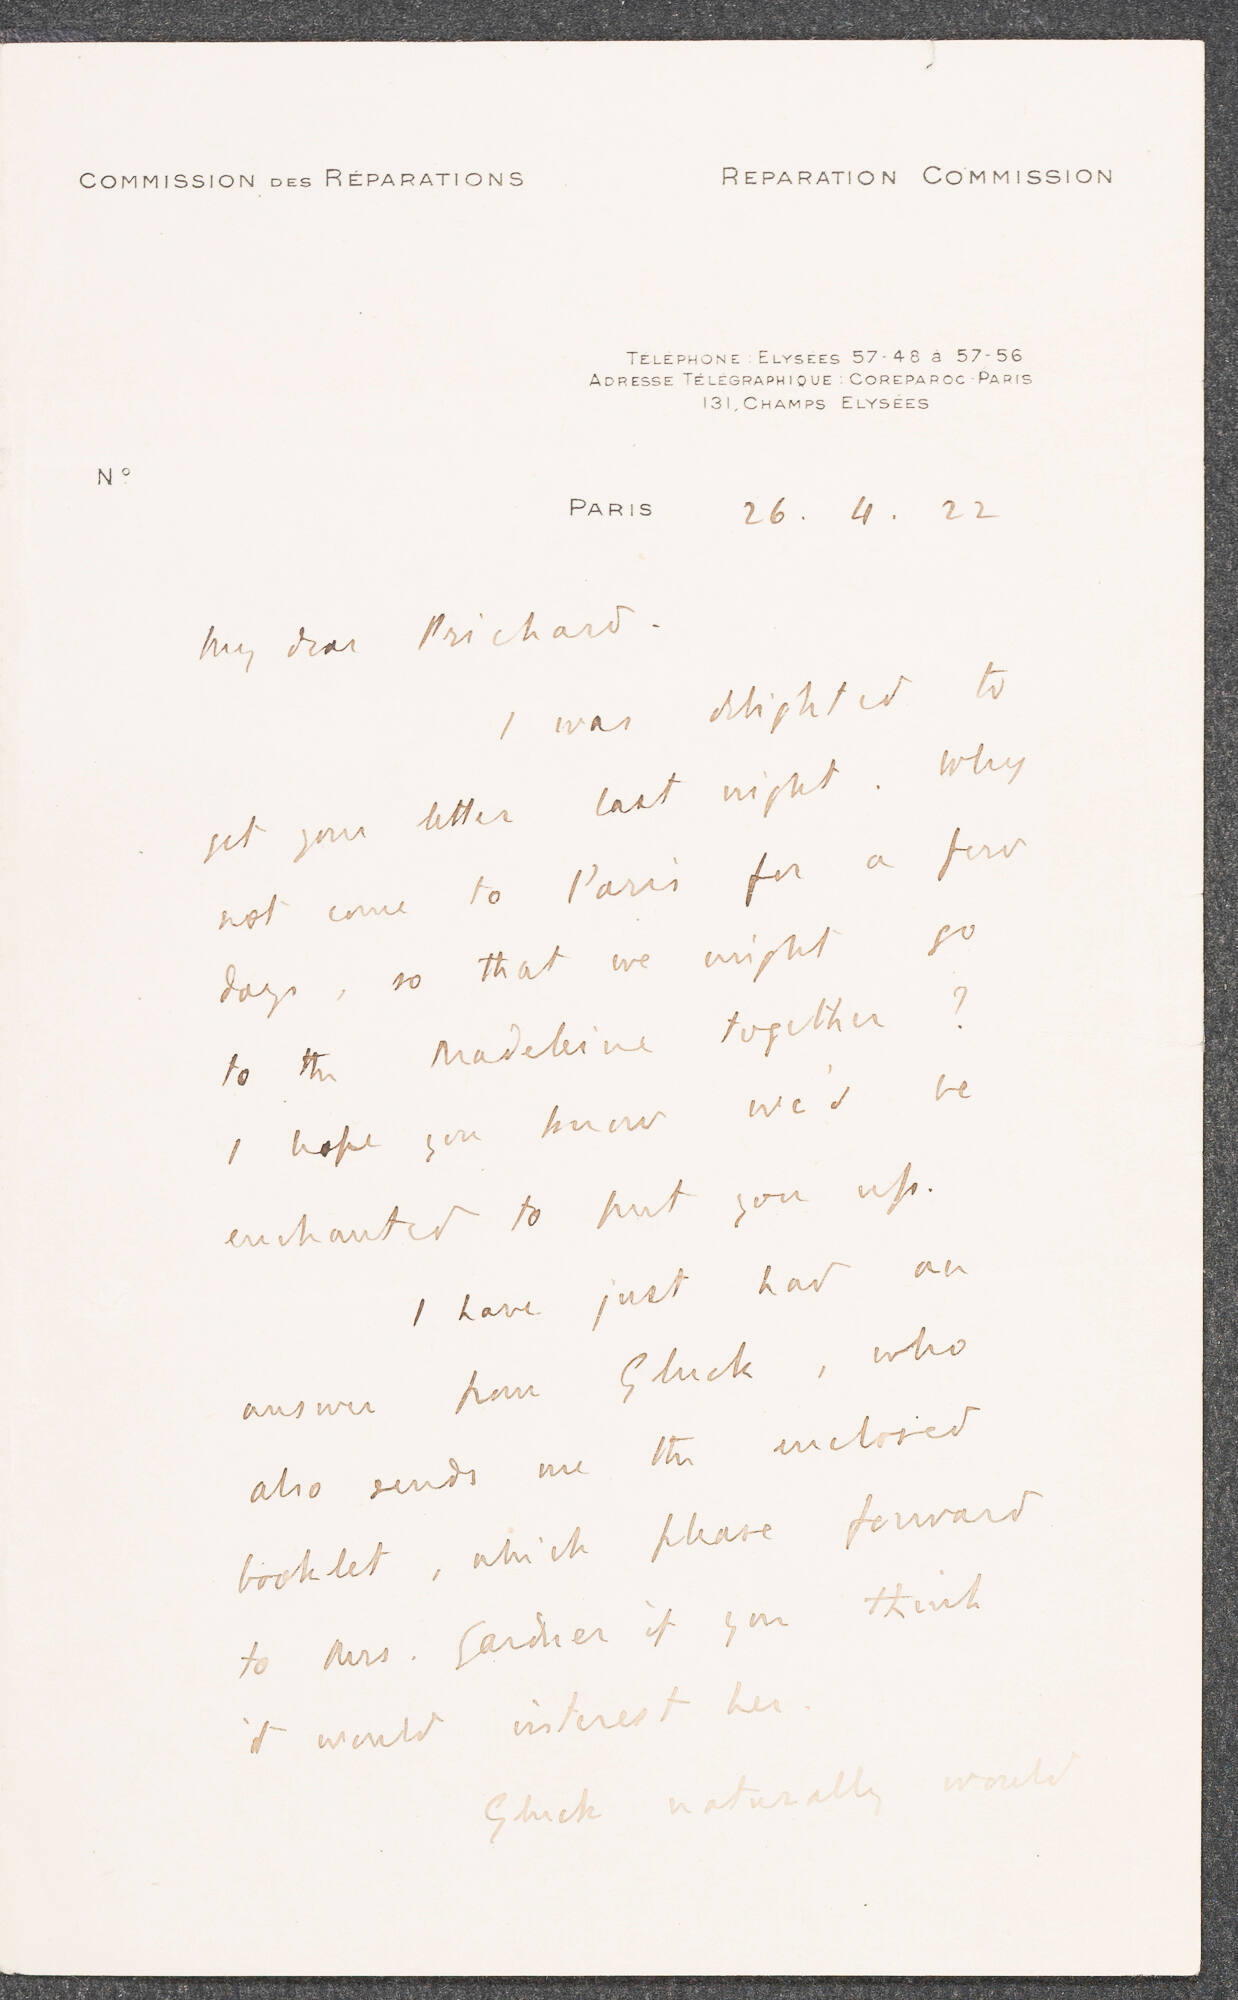 COMMISSION DES RÉPARATIONS
REPARATION COMMISSION
TÉLÉPHONE : ELYSÉES 57-48 à 57-56
ADRESSE TÉLÉGRAPHIQUE : COREPAROC-PARIS
131, CHAMPS ELYSÉES
No
PARIS 26. 4. 22
My dear Prichard.
I was delighted to
get your letter last night. Why
not come to Paris for a few
days, so that we might go
to the Madeleine together ?
I hope you know we'd be
enchanted to put you up.
I have just had an
answer from Gluck, who
also sends me the enclosed
booklet, which please forward
to Mrs. Gardner if you think
it would interest her.
Gluck naturally would